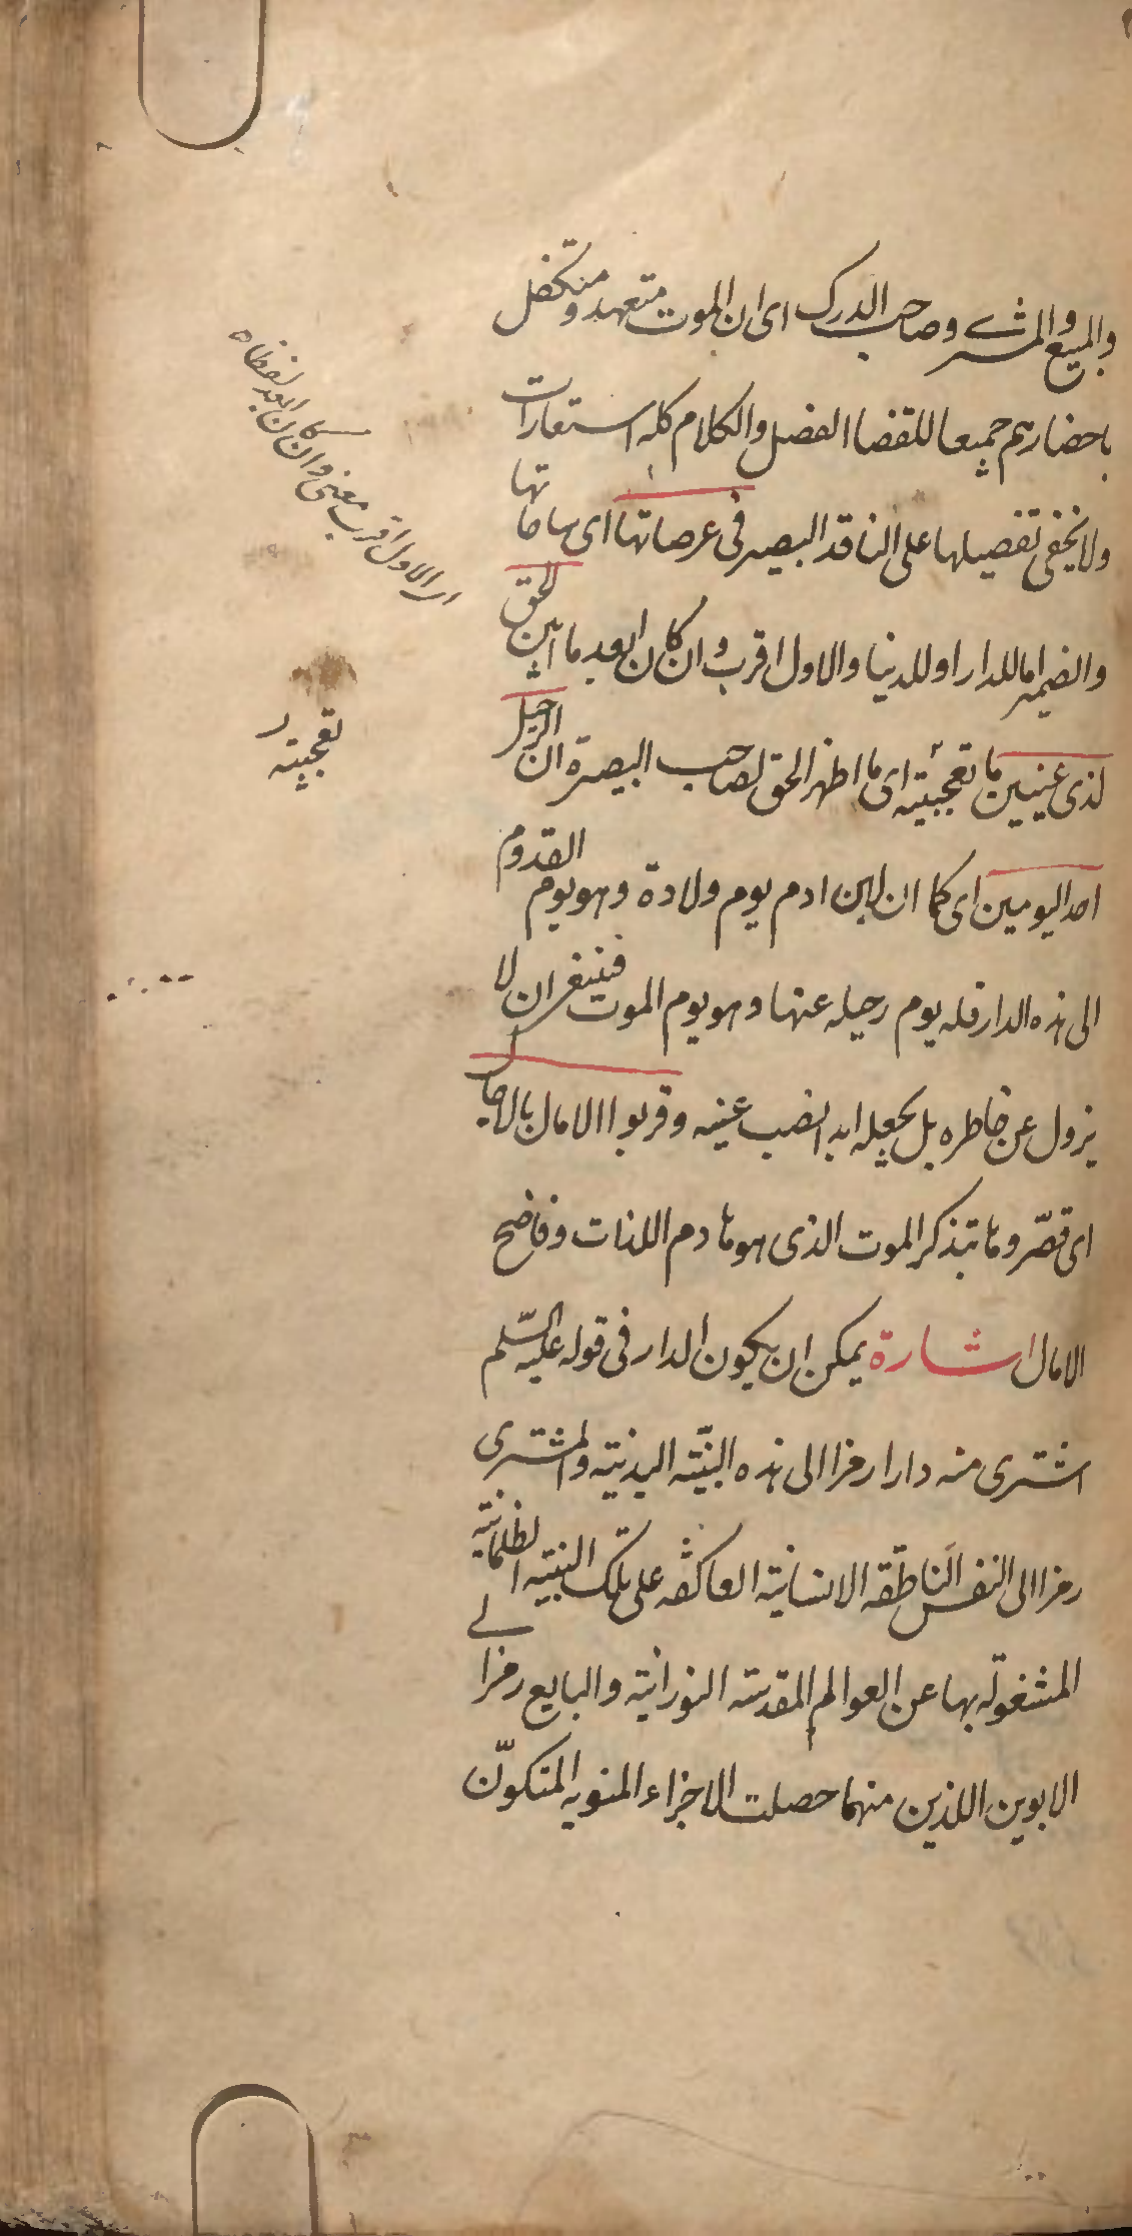 والمبيع والمشتري وصاحب الدرك اى ان الموت متعهد ومتكفل
باحضارهم جميعا للقضا الفصل والكلام كله استعارات
ولا يخفى تفصيلها على الناقد البصير فى عرصاتها اى ساحاتها
والضمير اما للدار او للدنيا والاول اقرب وان كان ابعد ما ابين الحق
لذى عينين ما تعجبية اى ما اظهر الحق لصاحب البصيرة ان الرحيل
احد اليومين اى كما ان لابن ادم يوم ولادة وهو يوم القدوم
الى هذه الدار فله يوم رحيله عنها وهو يوم الموت فينبغى ان لا
يزول عن خاطره بل يجعله ابدا نصب عينيه وقربوا الامال بالاجا
اى قصّروها بتذكر الموت الذى هو هادم اللذات وفاضح
الامال اشارة يمكن ان يكون الدار فى قوله عليه السّلم
اشترى منه دارا رمزا الى هذه البنية البدنية والمشترى
رمزا الى النفس الناطقة الانسانية العاكفة على تلك البنية الظلمانية
المشغولة بها عن العوالم المقدسة النورانية والبايع رمزا الى
الابوين اللذين منهما حصلت الاجزاء المنوية المتكوّن
اى الاول اقرب معنى وان كان ابعد لفظا
تعجبية